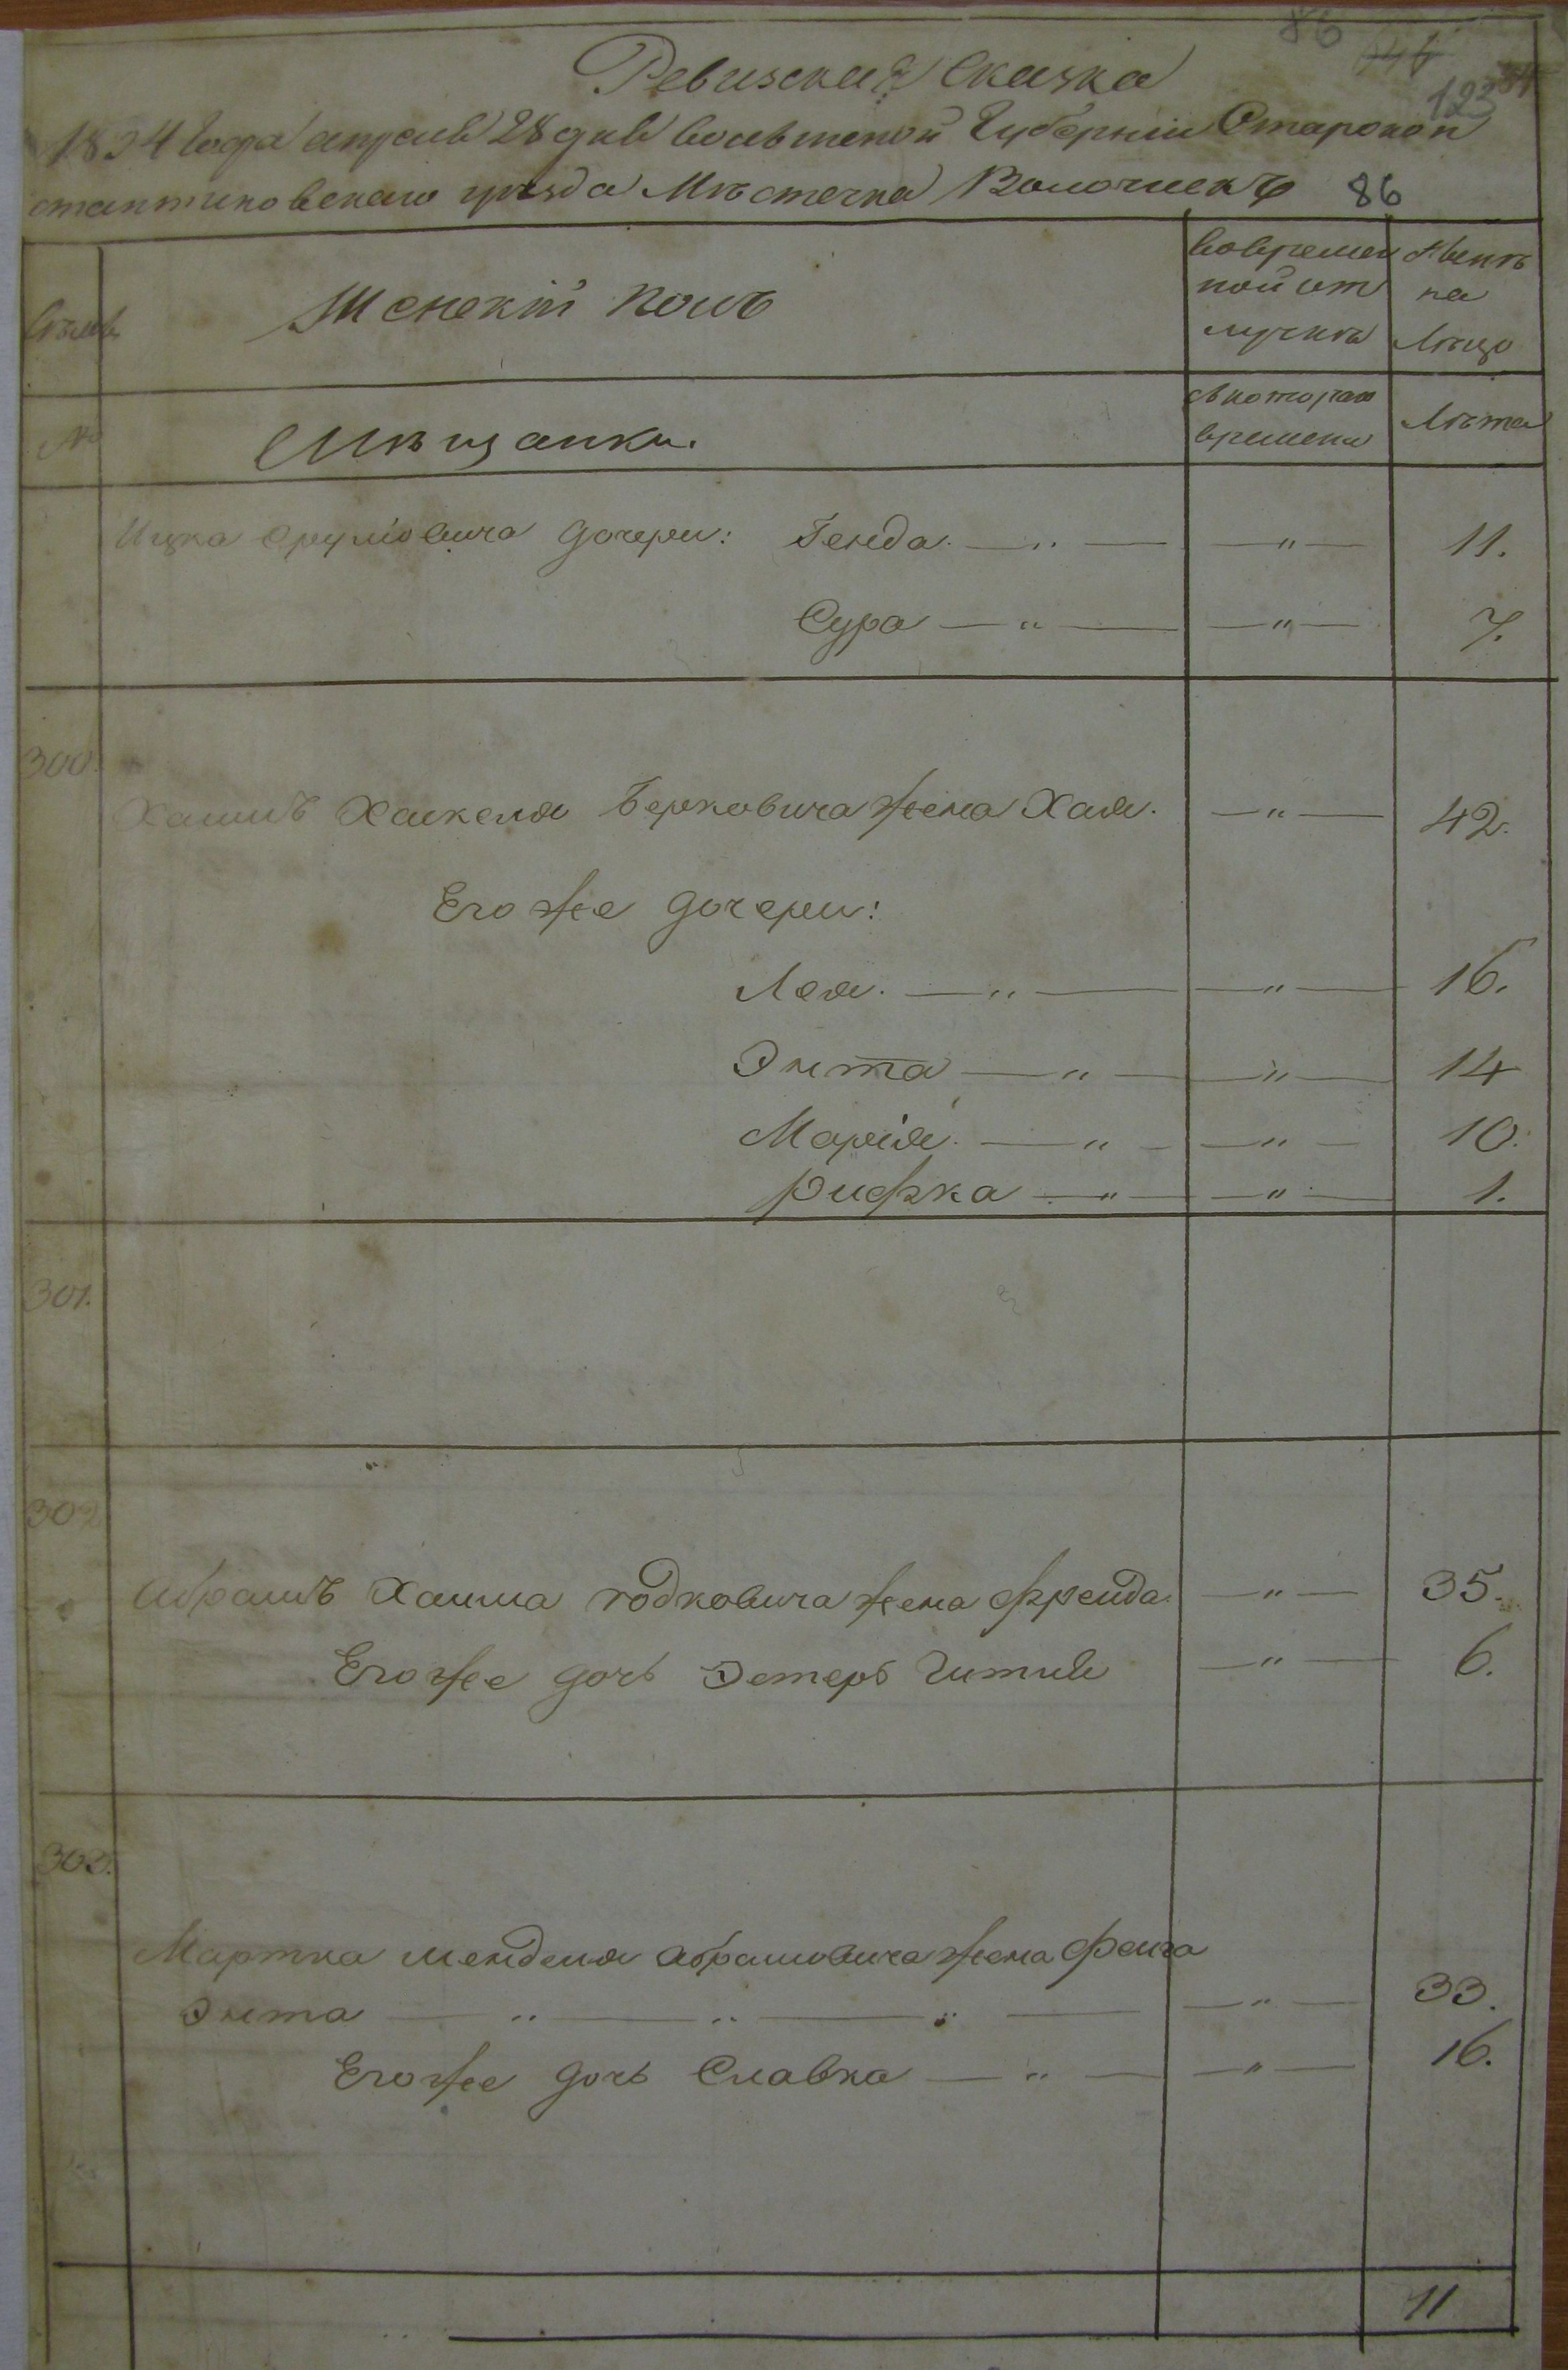 86
146
123 34
Ревизская Сказка
1834 года апреля 28 дня волынской Губернии Старокон
стантиновскаго уезда Мѣстечка Волочискъ 86
Семьи Женскій полъ вовремен ной от лучкѣ Нынѣ на Лицо
№ Мѣщанки. съ котораго времени Лѣта
Ицка Срулiовича дочери: Генда — " — — " — 11.
Сура — " — — " — 7.
300.
Хаимъ Хаскеля Берковича жена Хая. — " — 42.
Его же дочери:
Лея. — " — — " — 16.
Энта — " — — " — 14
Марiя. — " — — " — 10.
Рифка — " — — " — 1.
301.
302
Абрамъ Хаима годковича жена Фрейда. — " — 35.
Его же дочь Эстеръ Гитля — " — 6.
303.
Мартка менделя абрамовича жена Фейга
Энта — " — " — " — — " — 33.
Его же дочь Славка — " — — " — 16.
11